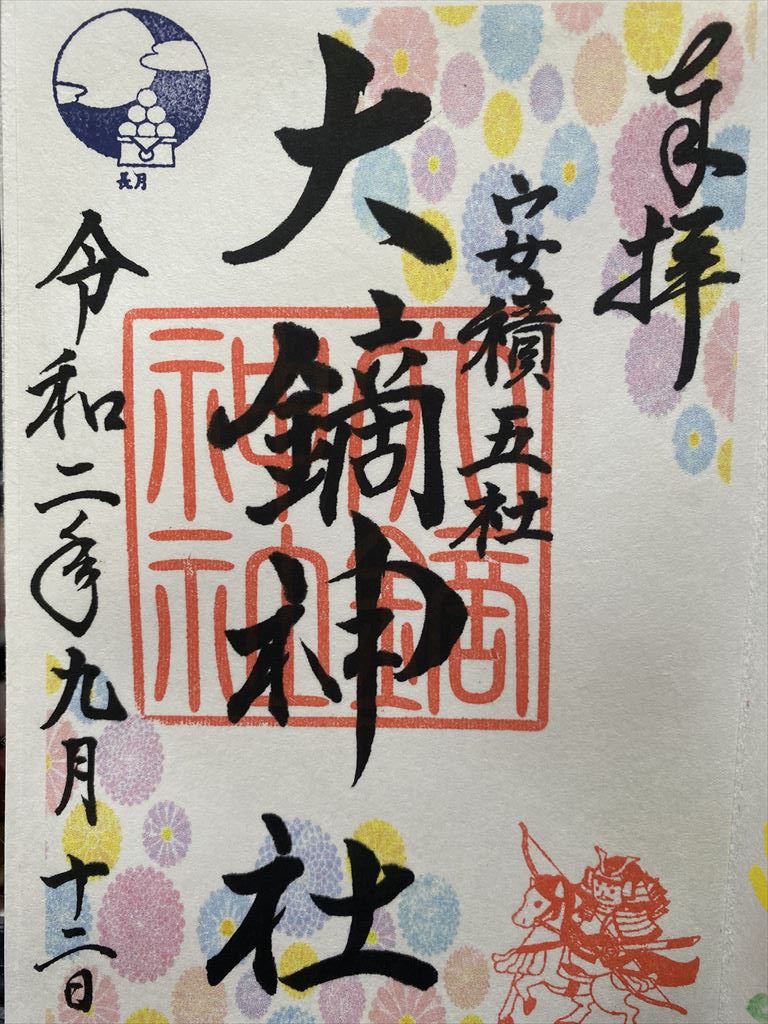 奉拝
安積五社
大鏑神社
大鏑神社
令和二年九月十二日
長月